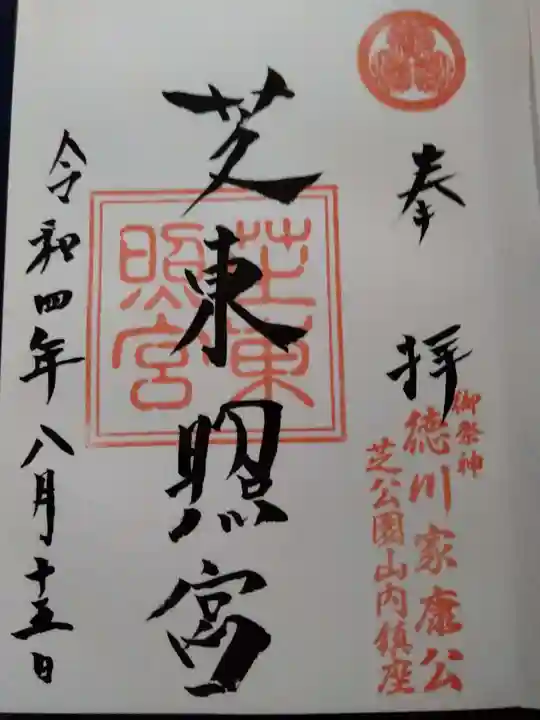 奉拝
御祭神
徳川家康公
芝公園山内鎮座
芝東照宮
芝東
照宮
令和四年八月十五日